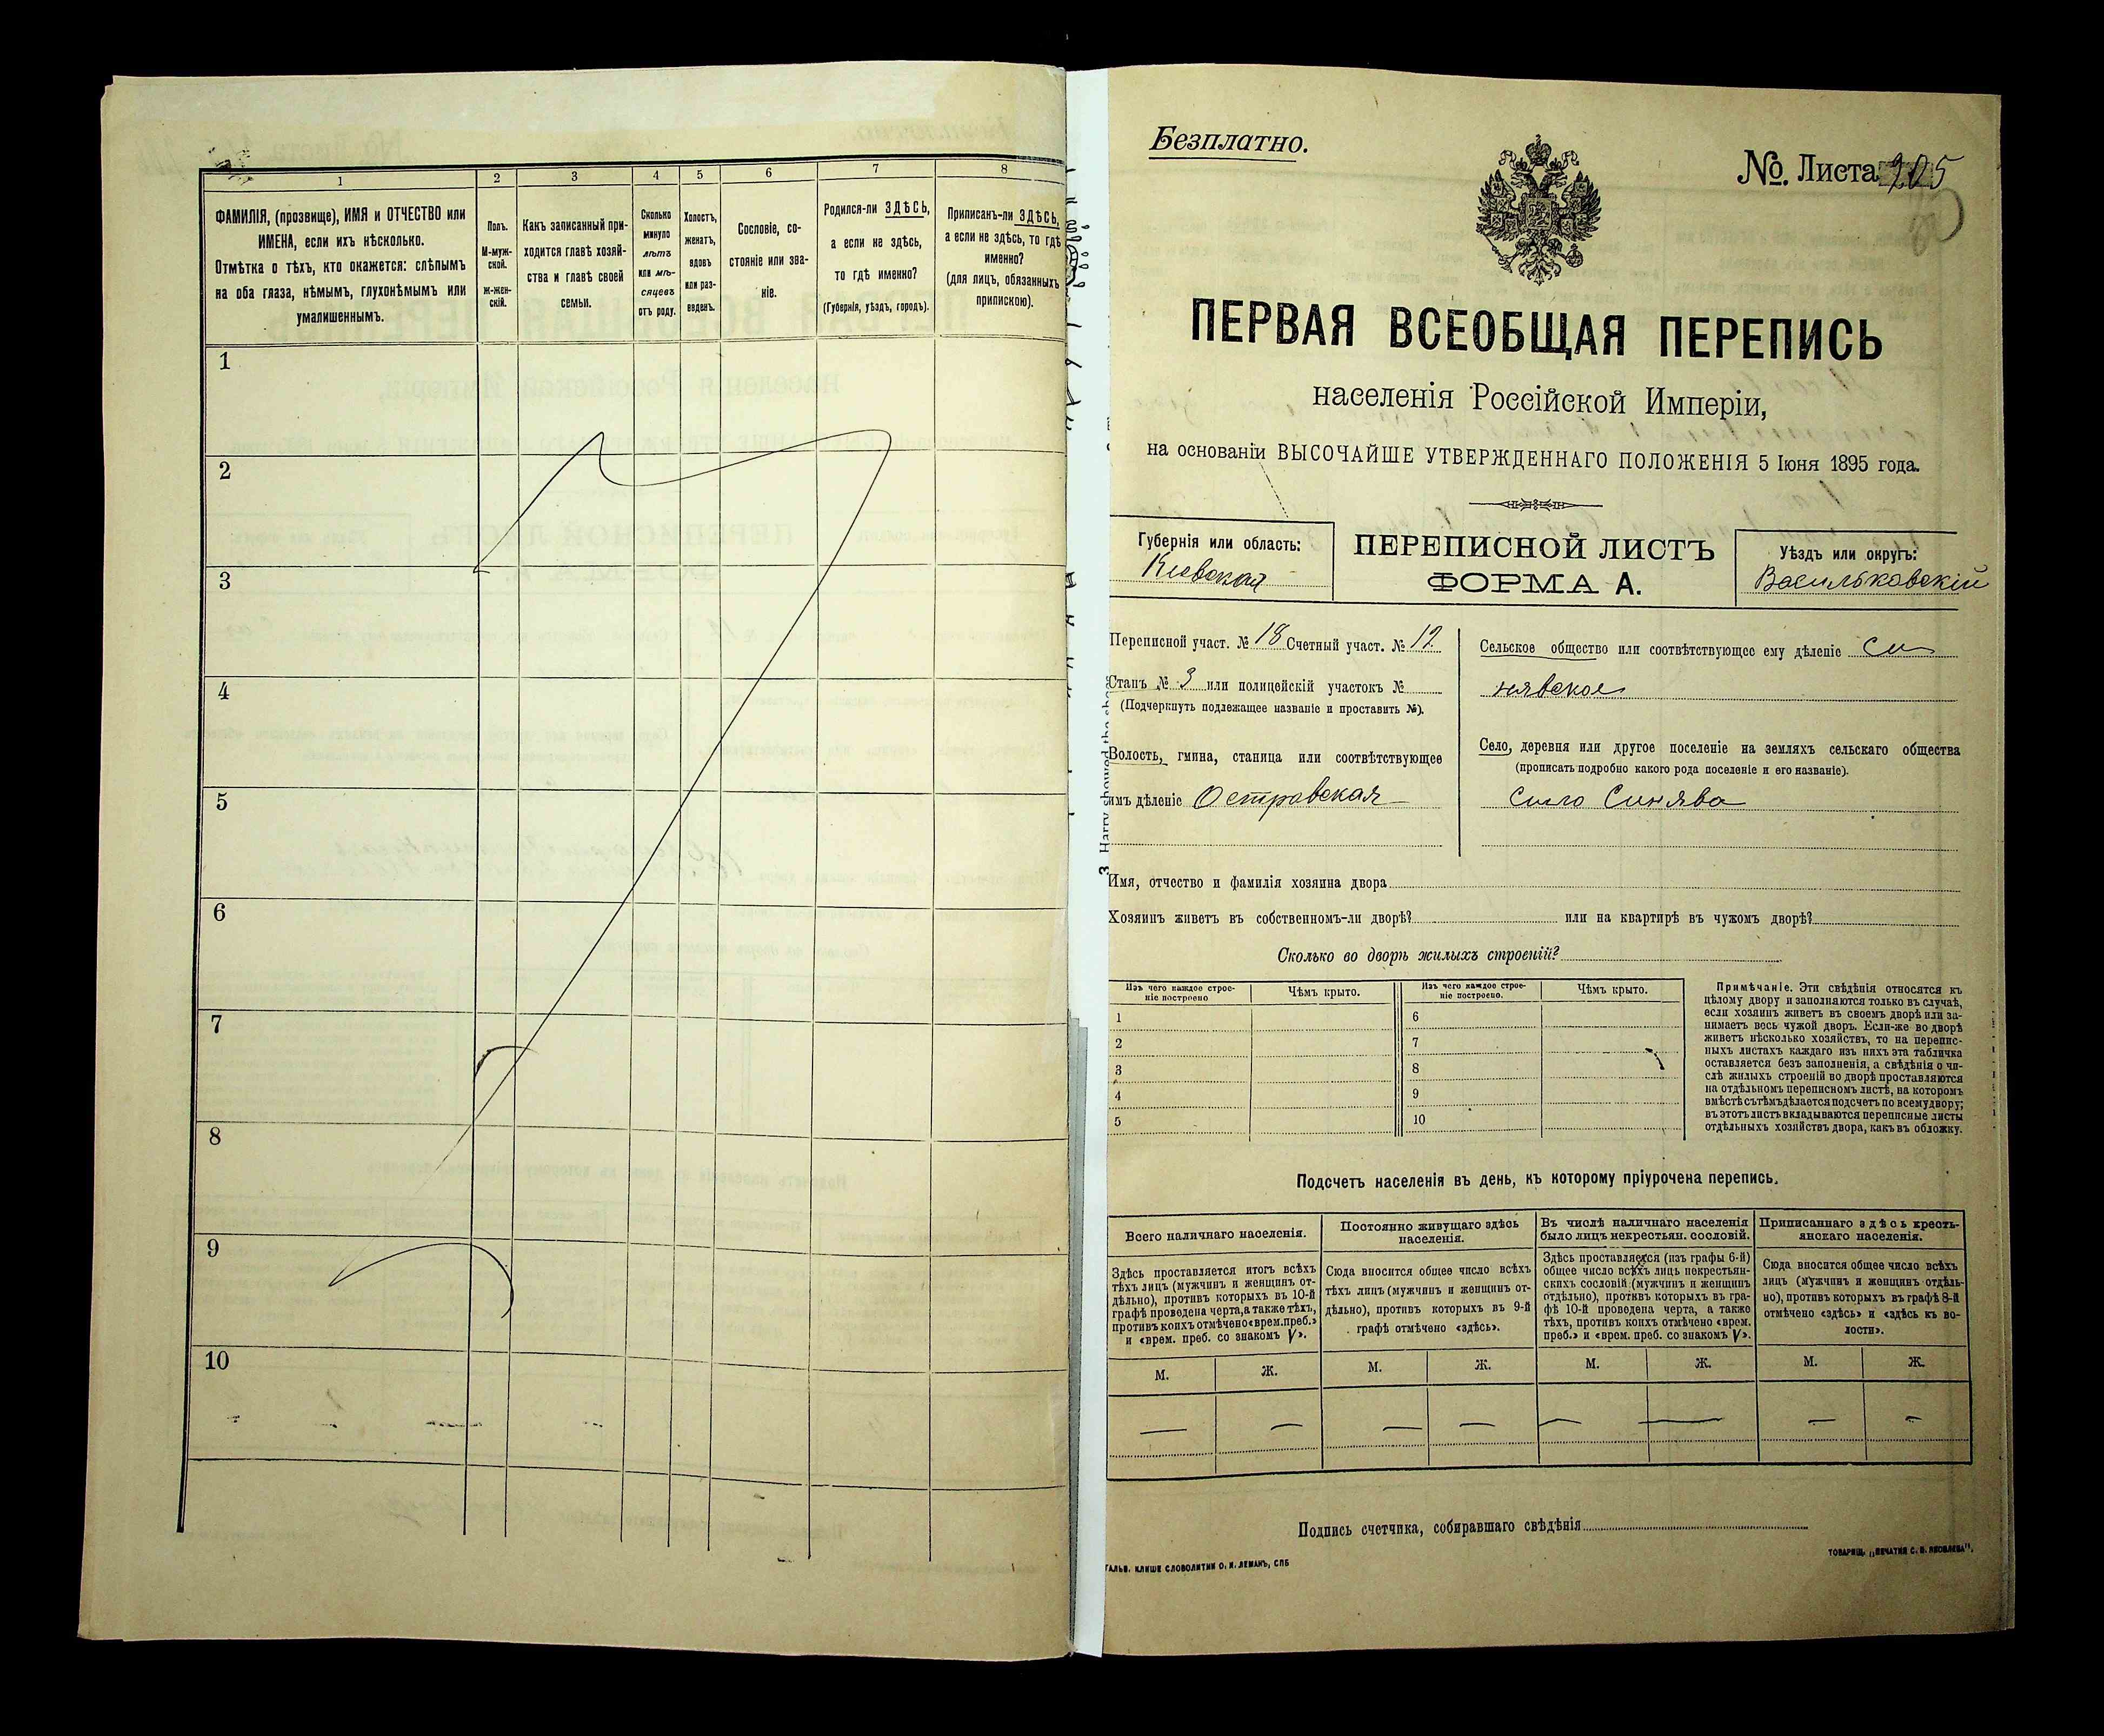 1
2
3
4
5
6
7
8
ФАМИЛІЯ, (прозвище), ИМЯ и ОТЧЕСТВО или
ИМЕНА, если ихъ нѣсколько.
Отмѣтка о тѣхъ, кто окажется: слѣпымъ
на оба глаза, нѣмымъ, глухонѣмымъ или
умалишеннымъ.
Полъ.
М-муж-
ской.
ж-жен-
скій.
Какъ записанный при-
ходится главѣ хозяй-
ства и главѣ своей
семьи.
Сколько
минуло
лѣтъ
или мѣ-
сяцевъ
отъ роду.
Холостъ,
женатъ,
вдовъ
или раз-
веденъ.
Сословіе, со-
стояніе или зва-
ніе.
Родился-ли ЗДѢСЬ,
а если не здѣсь,
то гдѣ именно?
(Губернія, уѣздъ, городъ).
Приписанъ-ли ЗДѢСЬ,
а если не здѣсь, то гдѣ
именно?
(для лицъ, обязанныхъ
припискою).
1
2
3
4
5
6
7
8
9
10
3. Harry showed the
Безплатно.
№. Листа 905
ПЕРВАЯ ВСЕОБЩАЯ ПЕРЕПИСЬ
населенія Россійской Имперіи,
на основаніи ВЫСОЧАЙШЕ УТВЕРЖДЕННАГО ПОЛОЖЕНІЯ 5 Іюня 1895 года.
Губернія или область:
Кіевская
ПЕРЕПИСНОЙ ЛИСТЪ
ФОРМА А.
Уѣздъ или округъ:
Васильковскій
Переписной участ. № 18 Счетный участ. № 12
Станъ № 3 или полицейскій участокъ №
(Подчеркнуть подлежащее названіе и проставить №).
Волость, гмина, станица или соотвѣтствующее
имъ дѣленіе Островская
Сельское общество или соотвѣтствующее ему дѣленіе Си
нявское
Село, деревня или другое поселеніе на земляхъ сельскаго общества
(прописать подробно какого рода поселеніе и его названіе).
Село Синява
Имя, отчество и фамилія хозяина двора
Хозяинъ живетъ въ собственномъ-ли дворѣ? или на квартирѣ въ чужомъ дворѣ?
Сколько во дворѣ жилыхъ строеній?
Изъ чего каждое строе-
ніе построено
Чѣмъ крыто.
Изъ чего каждое строе-
ніе построено.
Чѣмъ крыто.
1
2
3
4
5
6
7
8
9
10
Примѣчаніе. Эти свѣдѣнія относятся къ
цѣлому двору и заполняются только въ случаѣ,
если хозяинъ живетъ въ своемъ дворѣ или за-
нимаетъ весь чужой дворъ. Если-же во дворѣ
живетъ нѣсколько хозяйствъ, то на перепис-
ныхъ листахъ каждаго изъ нихъ эта табличка
оставляется безъ заполненія, а свѣдѣнія о чи-
слѣ жилыхъ строеній во дворѣ проставляются
на отдѣльномъ переписномъ листѣ, на которомъ
вмѣстѣ съ тѣмъ дѣлается подсчетъ по всему двору;
въ этотъ листъ вкладываются переписные листы
отдѣльныхъ хозяйствъ двора, какъ въ обложку.
Подсчетъ населенія въ день, къ которому пріурочена перепись.
Всего наличнаго населенія.
Постоянно живущаго здѣсь
населенія.
Въ числѣ наличнаго населенія
было лицъ некрестьян. сословій.
Приписаннаго здѣсь кресть-
янскаго населенія.
Здѣсь проставляется итогъ всѣхъ
тѣхъ лицъ (мужчинъ и женщинъ от-
дѣльно), противъ которыхъ въ 10-й
графѣ проведена черта, а также тѣхъ,
противъ коихъ отмѣчено «врем. преб.»
и «врем. преб. со знакомъ V».
Сюда вносится общее число всѣхъ
тѣхъ лицъ (мужчинъ и женщинъ от-
дѣльно), противъ которыхъ въ 9-й
графѣ отмѣчено «здѣсь».
Здѣсь проставляется (изъ графы 6-й)
общее число всѣхъ лицъ некрестьян-
скихъ сословій (мужчинъ и женщинъ
отдѣльно), противъ которыхъ въ гра-
фѣ 10-й проведена черта, а также
тѣхъ, противъ коихъ отмѣчено «врем.
преб.» и «врем. преб. со знакомъ V».
Сюда вносится общее число всѣхъ
лицъ (мужчинъ и женщинъ отдѣль-
но), противъ которыхъ въ графѣ 8-й
отмѣчено «здѣсь» и «здѣсь къ во-
лости».
М.
Ж.
М.
Ж.
М.
Ж.
М.
Ж.
Подпись счетчика, собиравшаго свѣдѣнія
ГАЛЬВ. КЛИШЕ СЛОВОЛИТНИ О. И. ЛЕМАНЪ, СПБ
ТОВАРИЩ. „ПЕЧАТНЯ С. П. ЯКОВЛЕВА".